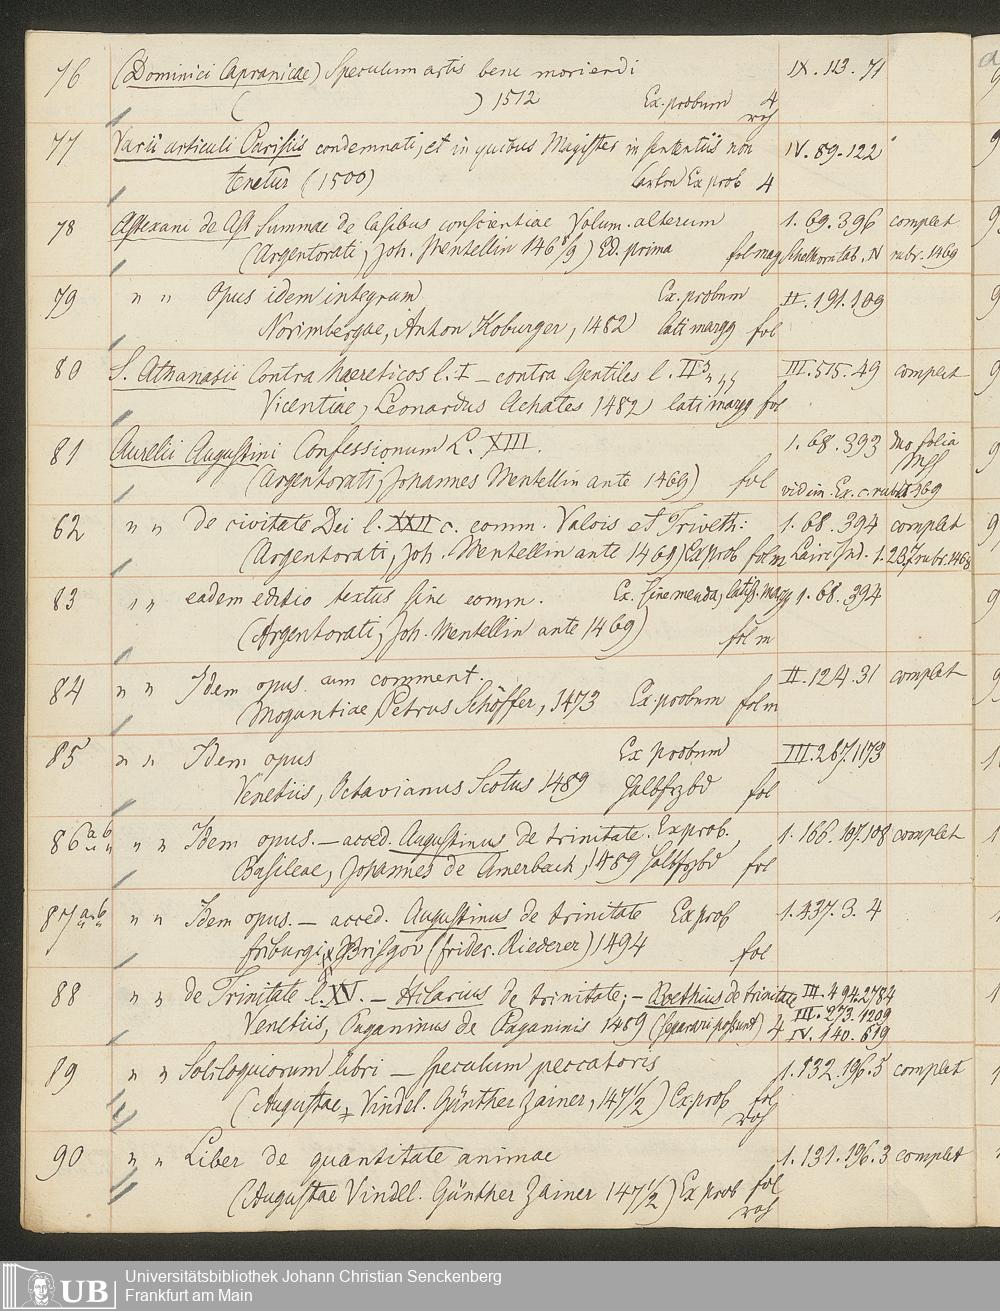 76 (Dominici Capranicae) Speculum artis bene moriendi IX. 113. 71
( ) 1512 Ex. probum 4
roh
77 Varii articuli Parisiis condemnati, et in quibus Magister in sententiis non IV. 89. 122
tenetur (1500) Carton Ex prob 4
78 Astexani de Ast Summae de Casibus conscientiae Volum. alterum 1. 69. 396 complet
(Argentorati, Joh. Mentellin 1468/9) Ed. prima fol mag rubr. 1469
79 " " Opus idem integrum Ex. probum II. 191. 109
Norimbergae, Anton Koburger, 1482 lati margg fol
80 S. Athanasii Contra haereticos l. I – contra Gentiles l. II III. 515. 49 complet
Vicentiae, Leonardus Achates 1482 lati margg fol
81 Aurelii Augustini Confessionum L. XIII. 1. 68. 393 duo folia
Mss
(Argentorati, Johannes Mentellin ante 1469) fol vid in Ex. c. rubr 1469
62 " " de civitate Dei l. XXII c. comm. Valois et Triveth: 1. 68. 394 complet
(Argentorati, Joh. Mentellin ante 1469) Ex prob fol m Laire Ind. 1. 287 rubr. 1468
83 " " eadem editio textus sine comm. Ex. sine menda, latiss. margg 1. 68. 394
(Argentorati, Joh. Mentellin ante 1469) fol m
84 " " Idem opus cum comment. II. 124. 31 complet
Moguntiae, Petrus Schöffer, 1473 Ex. probum fol m
85 " " Idem opus Ex probum III. 267. 1173
Venetiis, Octavianus Scotus 1489 halbfrzbd fol
86 a b " " Idem opus. – acced. Augustinus de trinitate. Ex prob. 1. 166. 107. 108 complet
Basileae, Johannes de Amerbach, 1489 halbfrzbd fol
87 a b " " Idem opus. – acced. Augustinus de trinitate Ex prob 1. 437. 3. 4
friburgi Brisgov (frider. Riederer) 1494 fol
88 " " de Trinitate l. XV. – Hilarius de trinitate; – Boethius de trinitate III. 494. 2784
III. 273. 1209
Venetiis, Paganinus de Paganinis 1489 (separari possunt) 4 IV. 140. 619
89 " " Soliloquiorum libri – speculum peccatoris 1. 132. 196. 5 complet
(Augustae Vindel. Günther Zainer, 1471/2) Ex. prob fol
roh
90 " " Liber de quantitate animae 1. 131. 196. 3 complet
(Augustae Vindel. Günther Zainer 1471/2) Ex prob fol
roh
UB Universitätsbibliothek Johann Christian Senckenberg
Frankfurt am Main